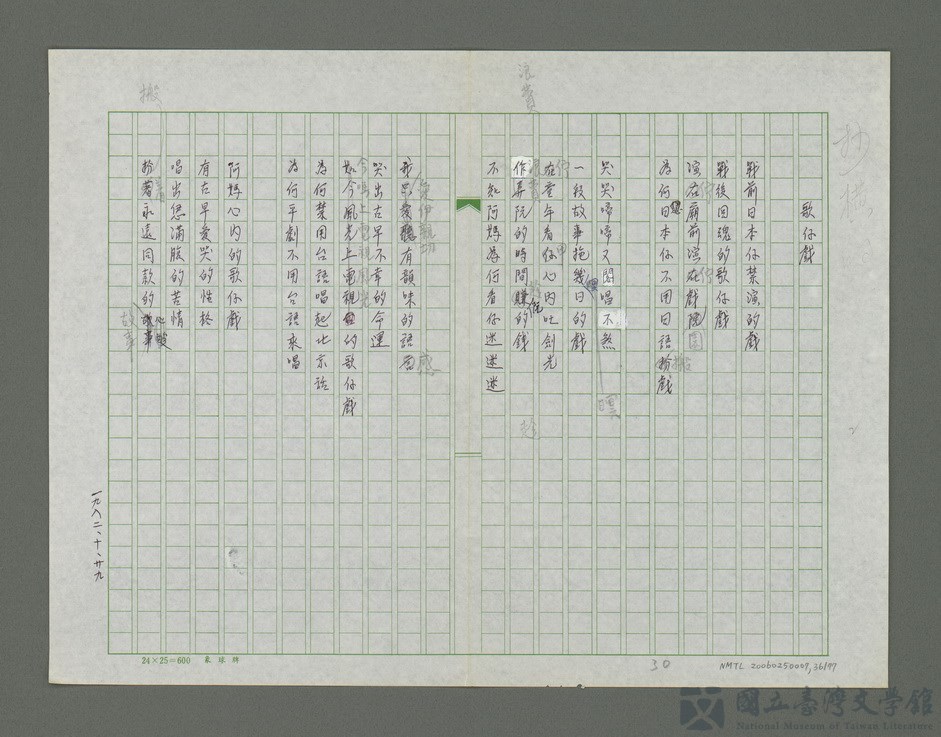 歌仔戲
戰前日本仔禁演的戲
戰後回魂的歌仔戲
演在廟前演在戲院
為何日本仔不用日語扮戲
哭哭啼啼又閣唱不煞
一段故事拖幾日的戲
在臺下看你心內吐劍光
作弄阮的時間賺的錢
不知阿媽為何看仔迷迷迷
有韻味的語言
哭出古早不幸的命運
如今風光上電視的歌仔戲
為何禁用台語唱起北京話
為何平劇不用台語來唱
阿媽心內的歌仔戲
有古早愛哭的性格
唱出您滿腹的苦情
扮著永遠同款的
故事
搬
浪費
抄
一九八二、十、廿九
24×25=600
30
NMTL 20060250007,36/97
國立臺灣文學館
National Museum of Taiwan Literature